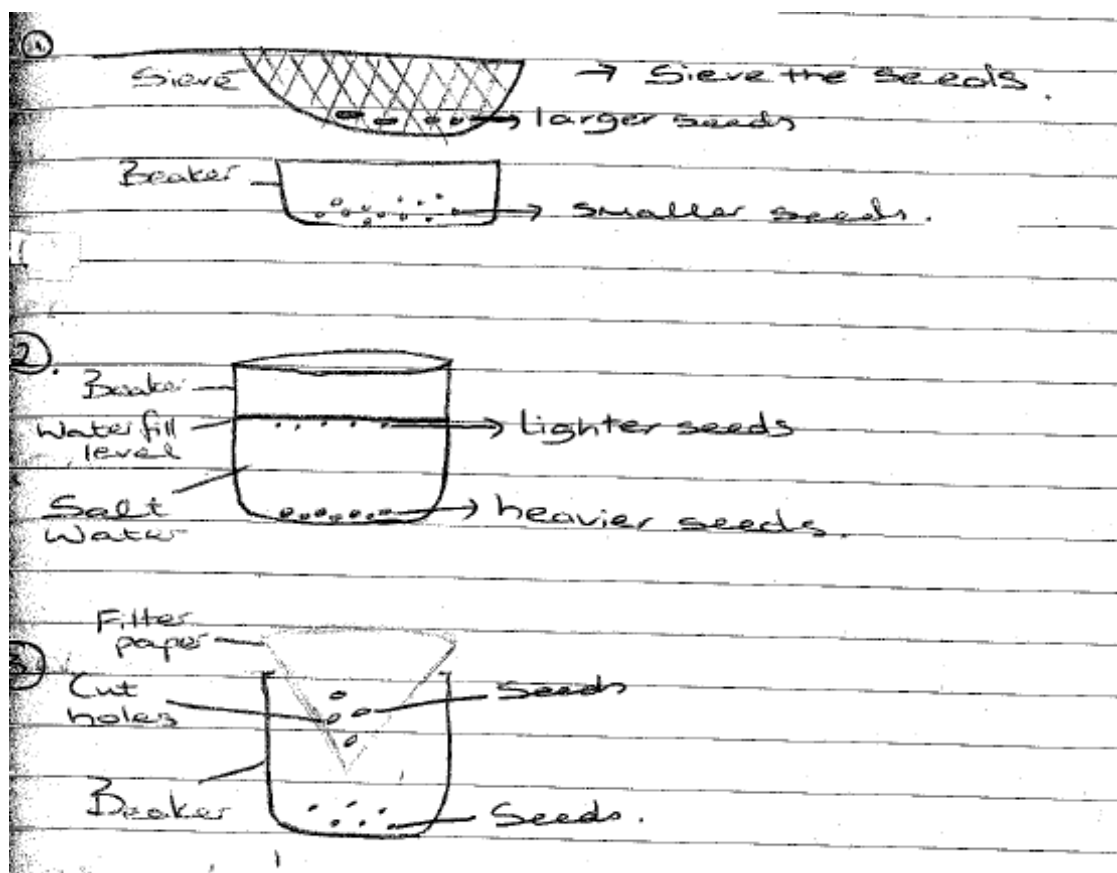 1
Sieve → Sieve the seeds.
→ larger seeds
Beaker → smaller seeds.
2.
Beaker
Water fill level → Lighter seeds
Salt Water → heavier seeds.
3
Filter paper
Cut holes Seeds
Beaker Seeds.